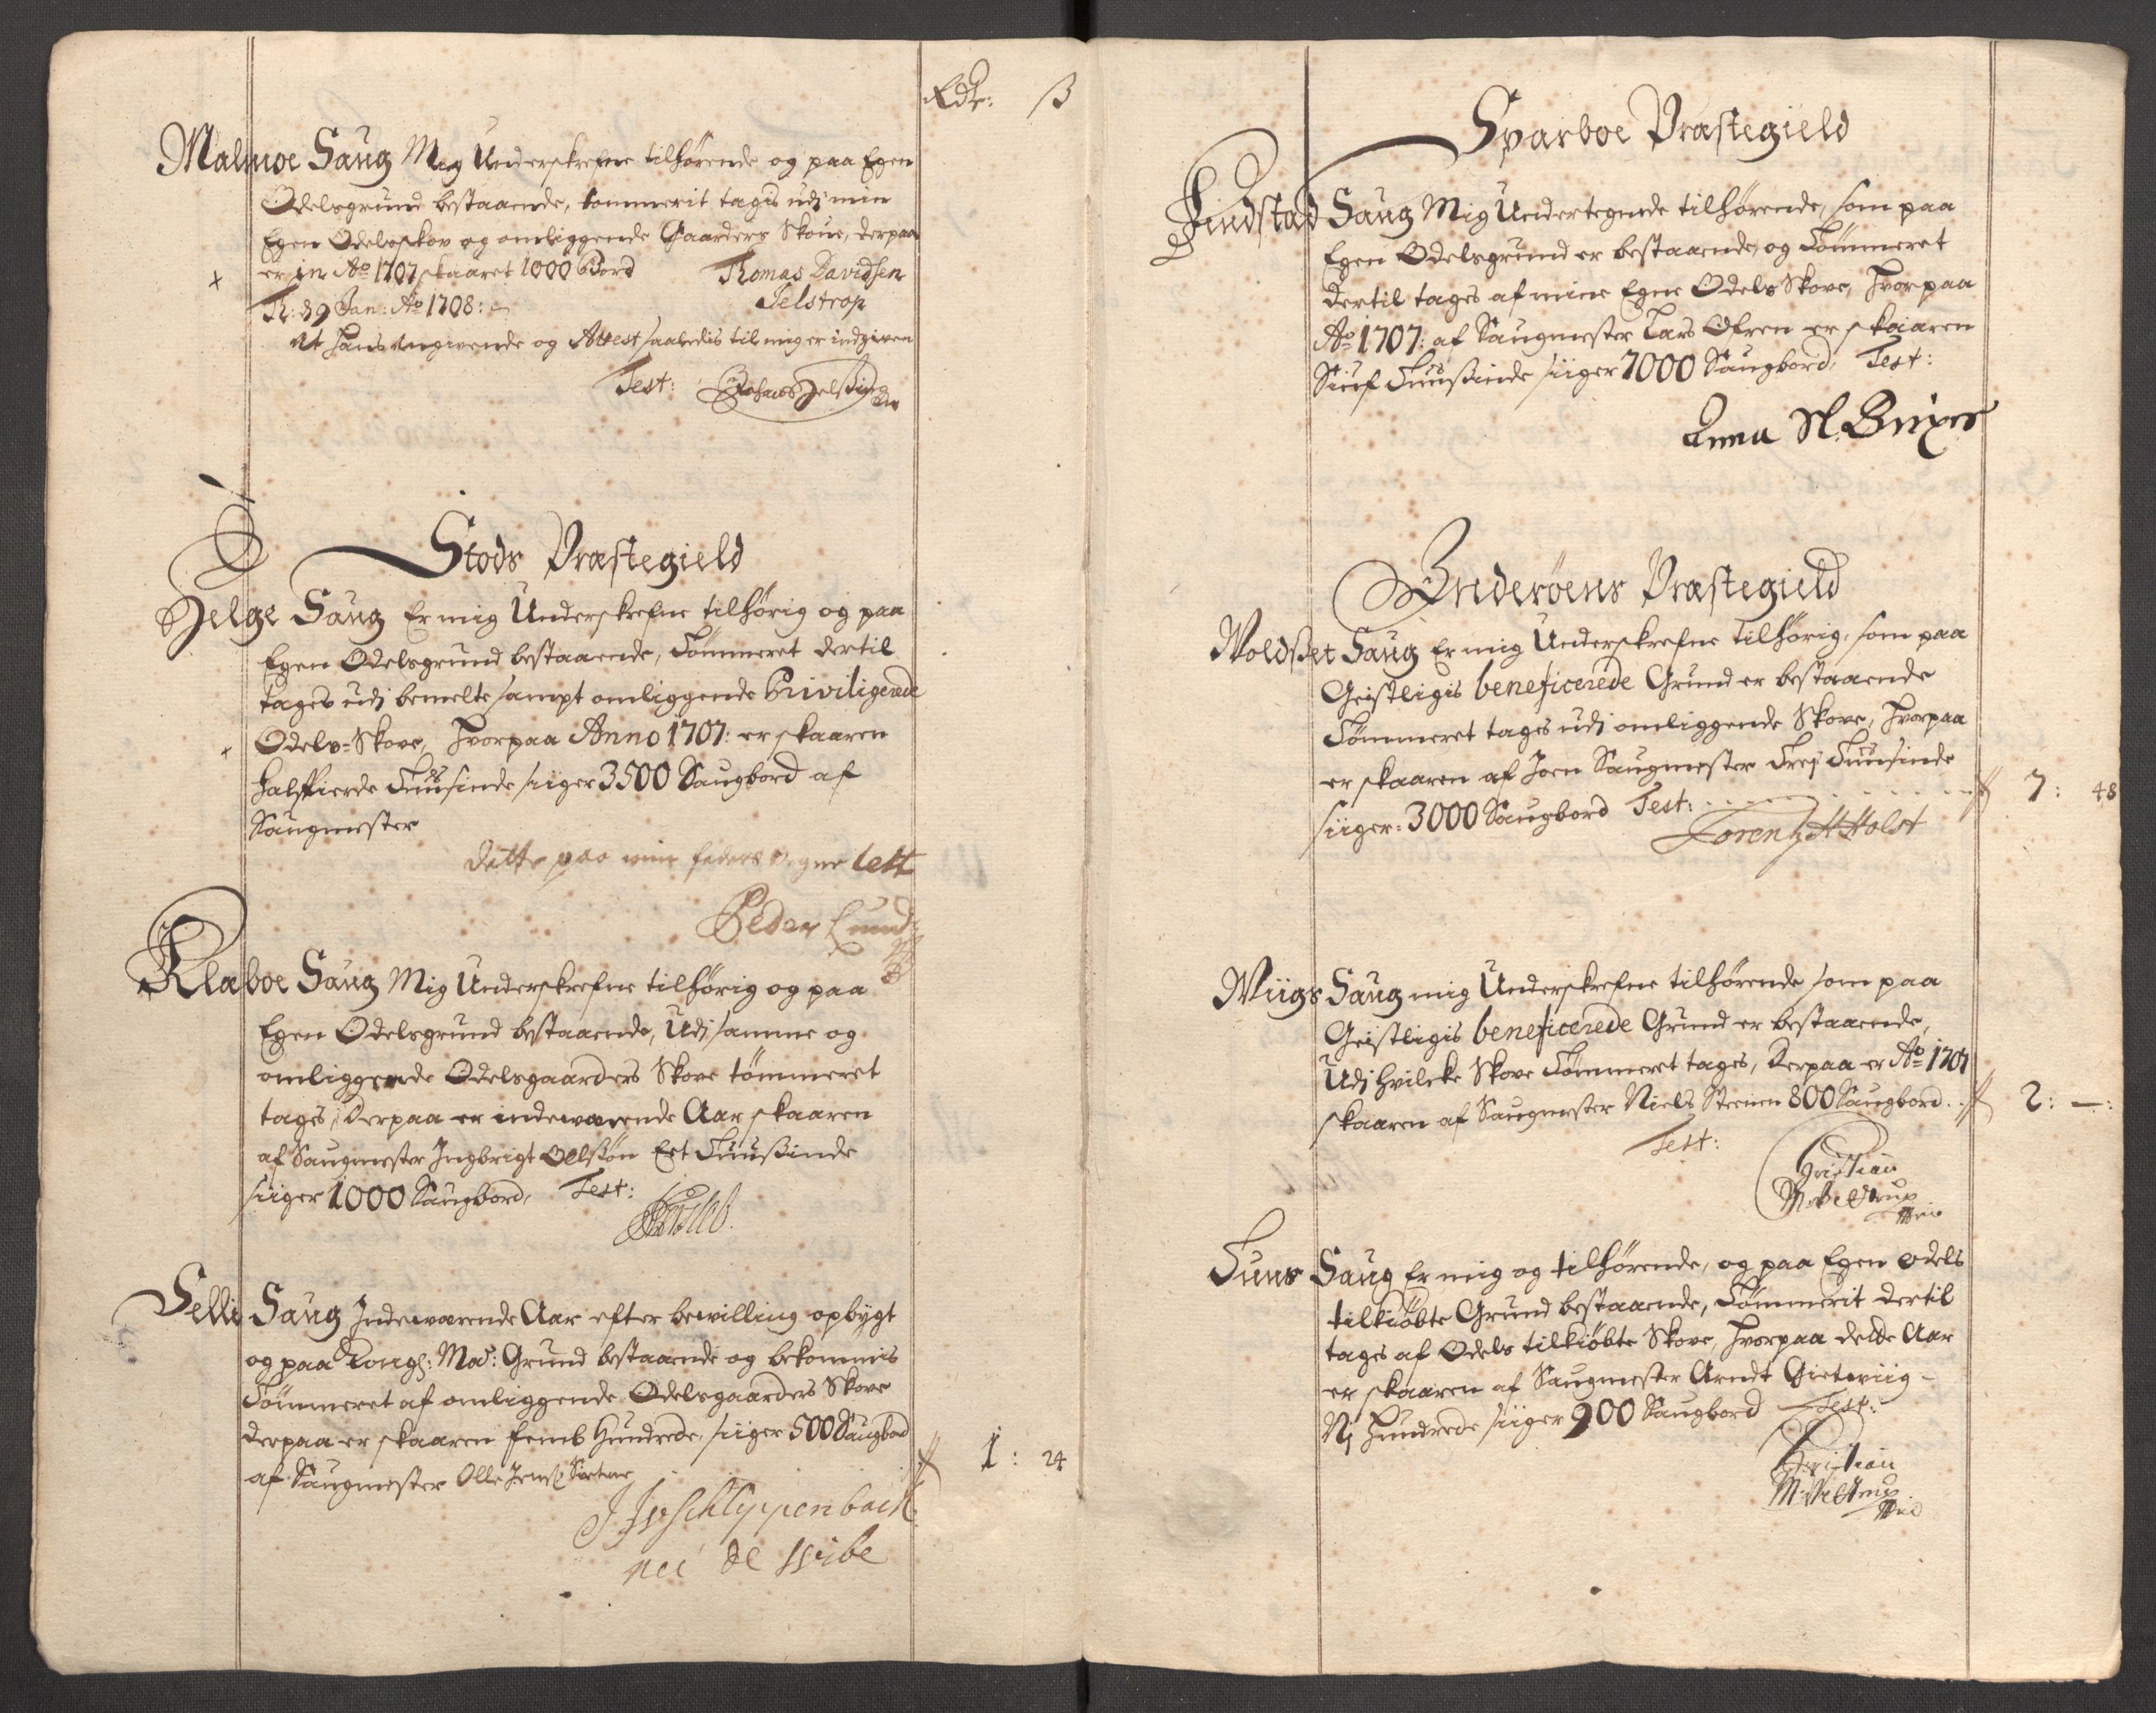 Rdr: ß
Malmoe Saug Mig Underskrefne tilhørende og paa Egen
Odelsgrund bestaaende, tommerit tagis udj min
Egen Odelsskov og omliggende Gaarders Skoue, derpaa
er in Ao 1707 skaaret 1000 Bord Thomas Davidsen
Jelstrop
Jan: Ao 1708:
At hans angivende og Attest saaledis til mig er indgiven
Test:
Stods Præstegield
Helge Saug Er mig Underskrefne tilhørig og paa
Egen Odelsgrund bestaaende, Tømmeret dertil
tages udj bemelte sampt omliggende Priviligerede
Odels-Skove, hvorpaa Anno 1707: er skaaren
halffierde Tuusinde siiger 3500 Saugbord af
Saugmester
dette paa min faders vegne test
Peder Lund
Klæboe Saug Mig Underskrefne tilhørig og paa
Egen Odelsgrund bestaaende, Udj samme og
omliggende Odelsgaarders Skove tømmeret
tages, Derpaa er indeværende Aar skaaren
af Saugmester Ingbrigt Olssøn Eet Tuusinde
siiger 1000 Saugbord, Test:
Selli Saug Indeværende Aar efter bevilling opbygt
og paa Kongl: Mas: Grund bestaaende og bekommis
Tømmeret af omliggende Odelsgaarders Skove
derpaa er skaaren femb Hundrede, siiger 500 Saugbord
af Saugmester Olle Jens: 1: 24
J Schlyppenback
Sparboe Præstegield
Findstad Saug Mig Undertegnede tilhørende, som paa
Egen Odelsgrund er bestaaende, og Tømmeret
dertil tages af mine Egne Odels Skove, hvorpaa
Ao 1707: af Saugmester Lars er skaaren
Siuf Tuusinde siiger 7000 Saugbord, Test:
Anna
Inderøens Præstegield
Woldset Saug Er mig Underskrefne tilhørig, som paa
Geistligis beneficerede Grund er bestaaende
Tømmeret tages udj omliggende Skove, hvorpaa
er skaaren af Joen Saugmester Trej Tuusinde
siiger: 3000 Saugbord Test: 7: 48
Lorentz H Holst
Wiigs Saug mig Underskrefne tilhørende som paa
Geistligis beneficerede Grund er bestaaende,
Udj hvilcke Skove Tømmeret tages, Derpaa er Ao 1707
skaaren af Saugmester Niels Steinen 800 Saugbord 2: —:
Test:
Christian
Tuns Saug Er mig og tilhørende, og paa Egen odels
tilkiøbte Grund bestaaende, Tømmerit dertil
tages af Odels tilkiøbte Skove, hvorpaa dette Aar
er skaaren af Saugmester Arndt Gietwiig
Nj Hundrede siiger 900 Saugbord Test:
Christian